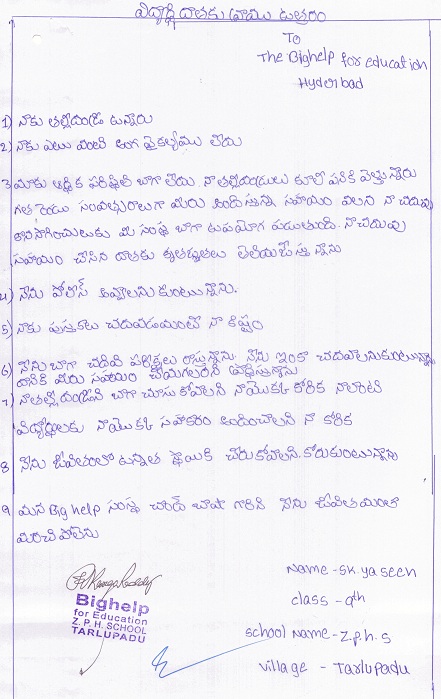 విద్యార్థి దాతకు వ్రాయు ఉత్తరం
To
The Bighelp for education
Hyderbad
1) నాకు తల్లిదండ్రి ఉన్నారు
2) నాకు ఎటు వంటి అంగ వైకల్యము లేదు
3 మాకు ఆర్థిక పరిస్థితి బాగా లేదు. నా తల్లిదండ్రులు కూలి పనికి వెళ్తున్నారు
గత రెండు సంవత్సరాలుగా మీరు అందిస్తున్న సహాయం వలన నా చదువు
కొనసాగించుటకు మీ సంస్థ బాగా ఉపయోగ పడుతుంది. నా చదువు
సహాయం చేసిన దాతకు కృతజ్ఞతలు తెలియజేస్తున్నాను
4) నేను పోలీస్ అవ్వాలనుకుంటున్నాను.
5) నాకు పుస్తకాలు చదవడమంటే నా కిష్టం
6) నేను బాగా చదివి పరీక్షలు రాస్తున్నాను. నేను ఇంకా చదవాలనుకుంటున్నాను
దానికి మీరు సహాయం చేయగలరని
7) నా తల్లిదండ్రిని బాగా చూసుకోవాలని నా యొక్క కోరిక నాలాంటి
విద్యార్థులకు నా యొక్క సహకారం అందించాలని నా కోరిక
8 నేను జీవితంలో ఉన్నత స్థాయికి చేరుకోవాలని. కోరుకుంటున్నాను
9 మన Big help సంస్థ చాంద్ బాషా గారిని నేను జీవితమంతా
మరిచిపోలేను
Name - SK.yaseen
class - 9th
school Name - Z.p.h.s
village - Tarlupadu
Bighelp
for Education
Z.P.H. SCHOOL
TARLUPADU